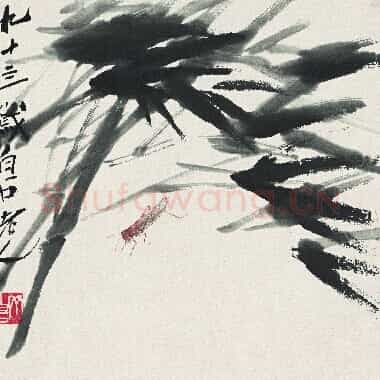 九十三歲白石老人
Shufawang.CN